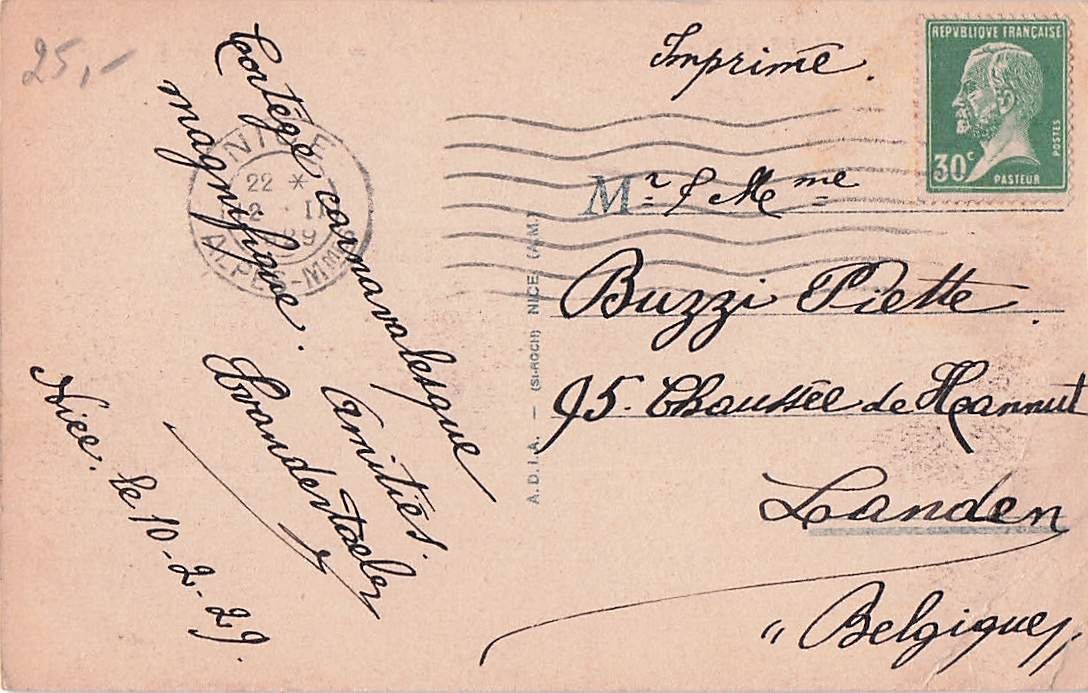 25,-
Cortège carnavalesque
magnifique.
Amitiés.
Nice, le 10-2-29.
NICE
22 *
ALPES-MMES
A.D.I.A. — (St-ROCH) NICE (A.M.)
Imprimé.
REPVBLIQUE FRANÇAISE
30c
POSTES
PASTEUR
Mr & Mme
Buzzi Piette.
95. Chaussée de Hannut
Landen
"Belgique"